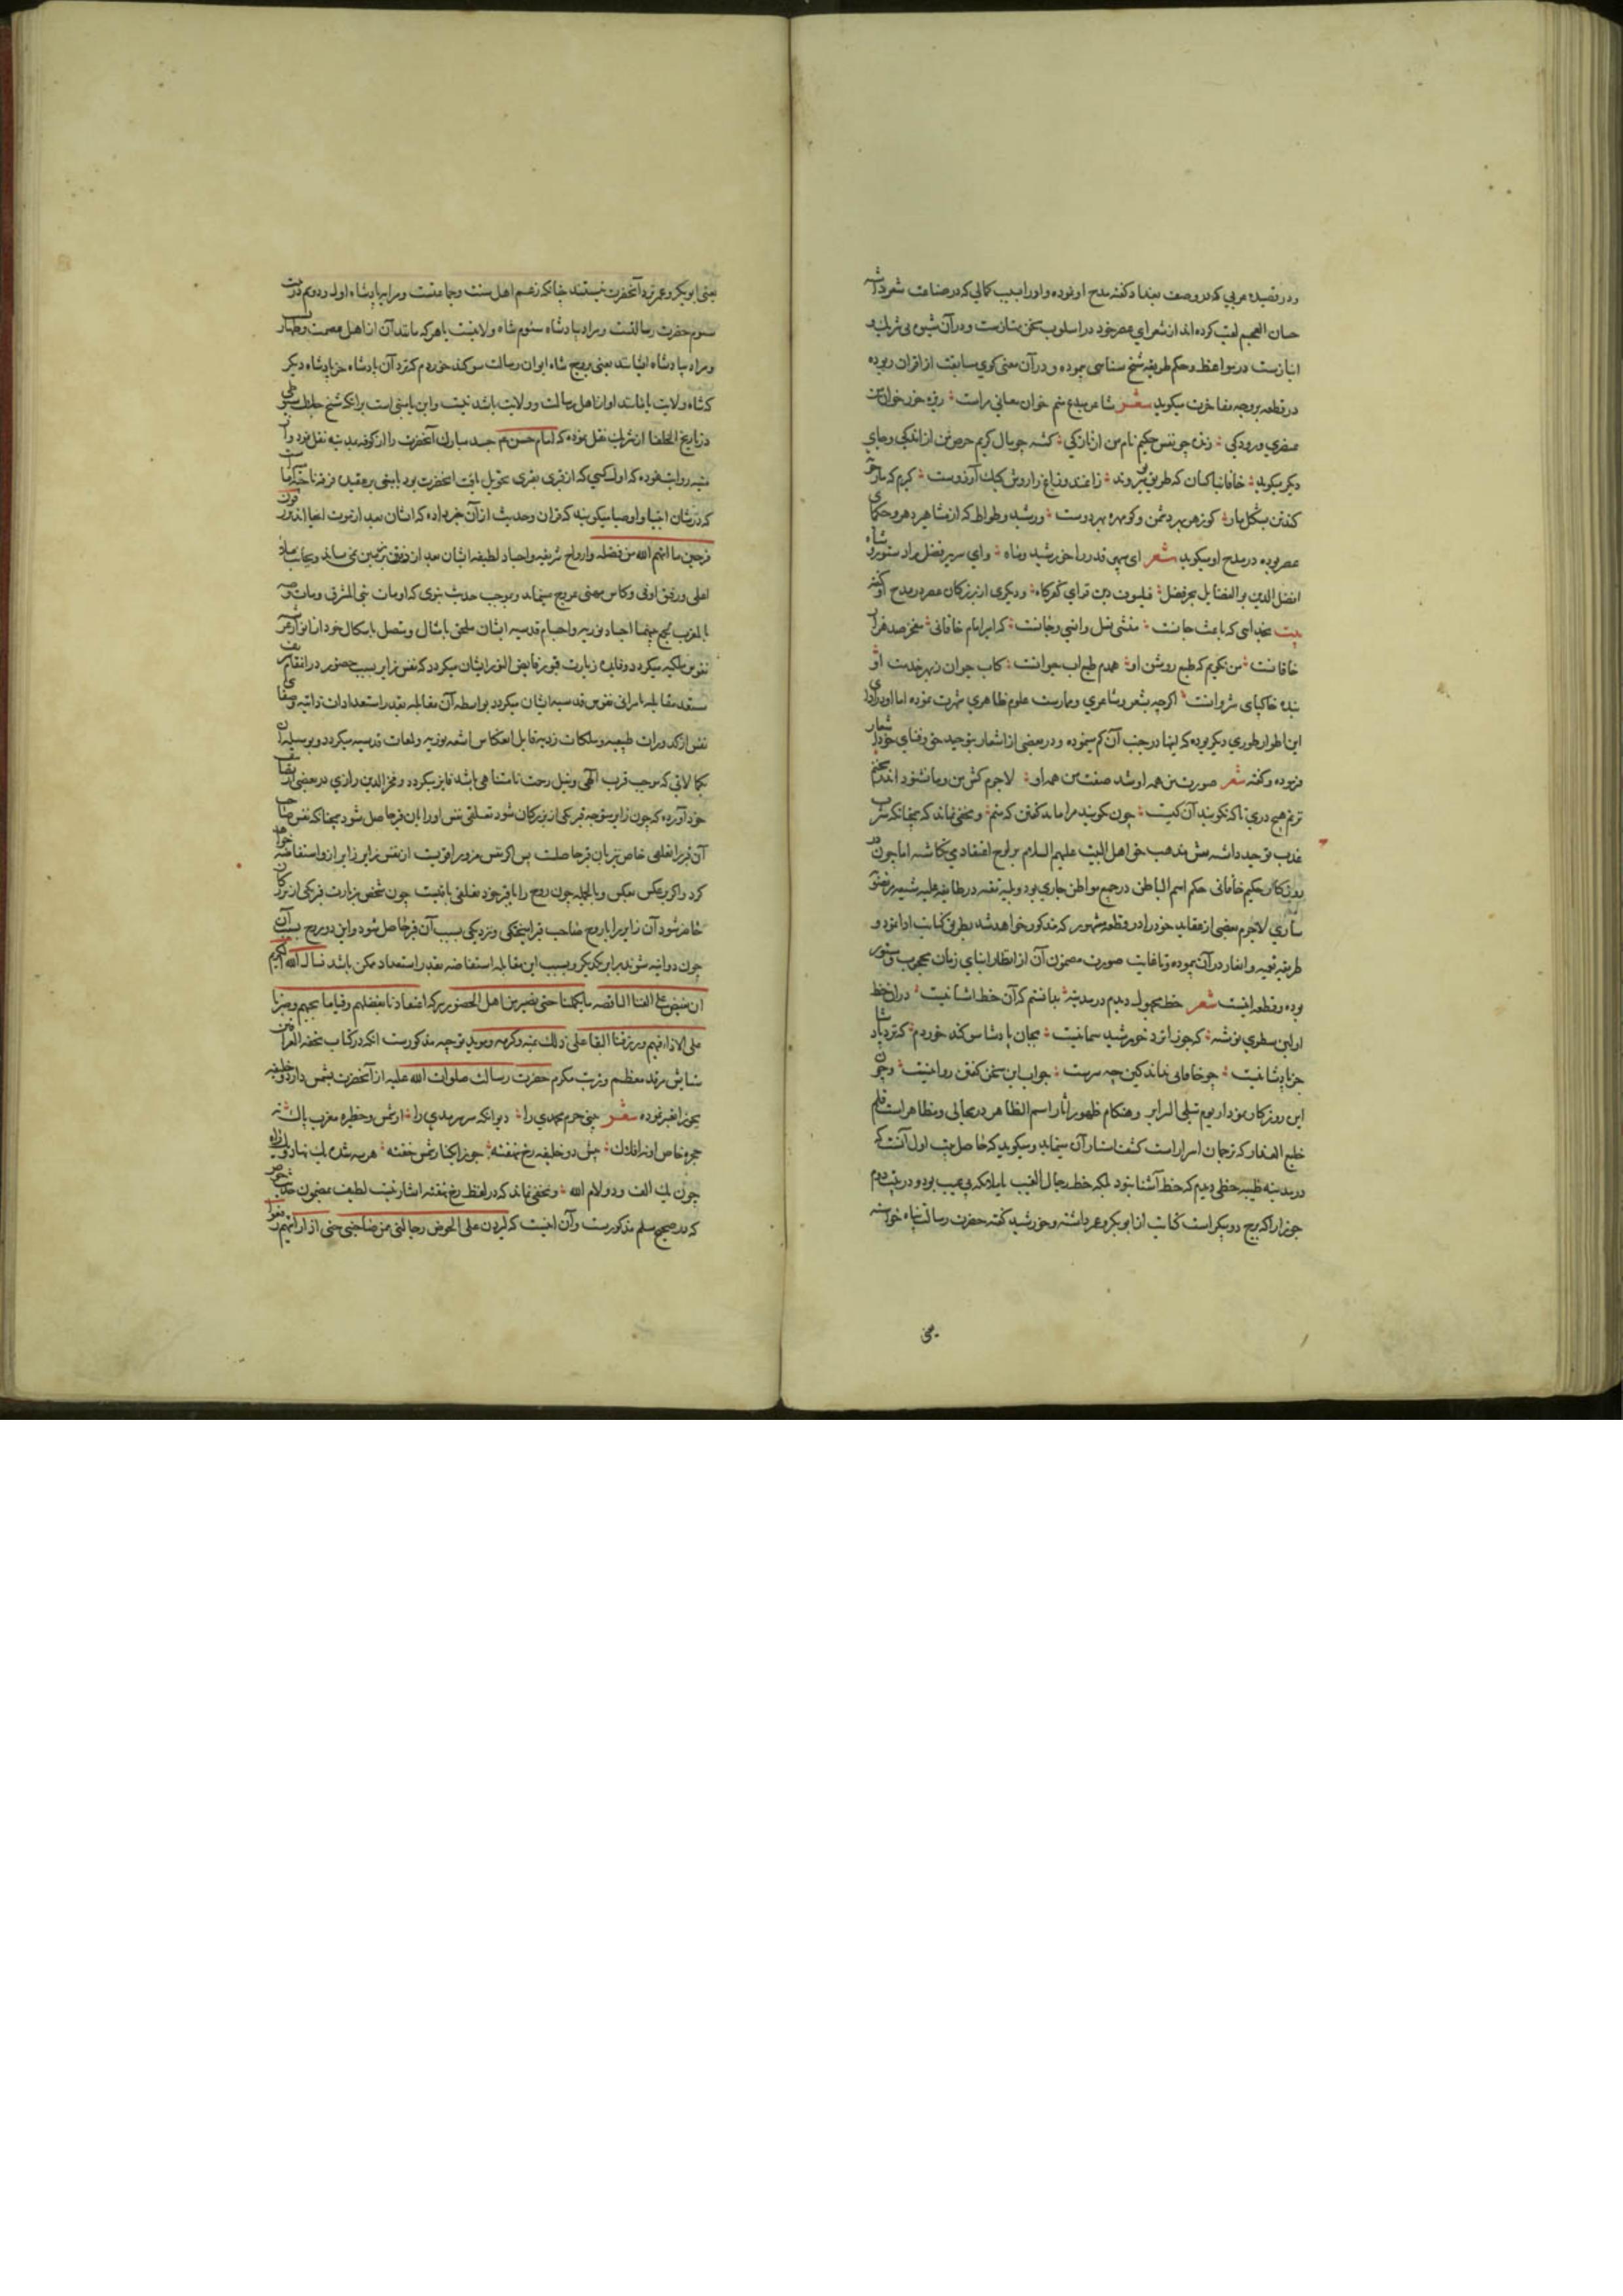 و در قصیده عربی که در وصف بغداد کفته مدح او نموده و او را بسبب کمالی که در صناعت شعر داشته
حسان العجم لقب کرده اند از شعرای عصر خود در اسلوب سخن ممتازست و در آن شیوه بی شریک و
انبازست در مواعظ و حکم طریقه شیخ سنائی نموده و در آن معنی کوی سابقت از اقران ربوده
در قطعه بر وجه مفاخرت میکوید شعر شاعر مبدع منم خوان معانی مراست ریزه خور خوان من
عنصری و رودکی زنده چو نفس حکیم نام من از تازکی کشته چو مال کریم حرص من از اندکی و جای
دیکر میکوید خاقانیا کسان که طریق تو میروند زاغند و زاغ را روش کبک آرزوست کیرم که مار چوبه
کند تن بشکل مار کو زهر بهر دشمن و کو مهره بهر دوست و رشید وطواط که از مشاهیر دهر و حکمای
عصر بوده در مدح او میکوید شعر ای سپهر قدر را خورشید و ماه وای سریر فضل را دستور و شاه
افضل الدین بو الفضایل بحر فضل فیلسوف دین فزای کفر کاه و دیکری از بزرکان عصر در مدح او کفته
بیت بخدایی که باعث جانست منشی نفس وانسی و جانست که امیر امام خاقانی سخن صد هزار
خاقانست من نکویم که طبع روشن او همدم طبع اب حیوانست کاب حیوان ز بهر خدمت او
بنده خاکپای شروانست اکرچه بشعر و شاعری و ممارست علوم ظاهری شهرت نموده اما او را ورای
این اطوار طوری دیکر بوده که اینها در جنب آن کم مینموده و در بعضی از اشعار بتوحید حق و فنای خود اشعار
فرموده و کفته شعر صورت من همه او شد صفت من همه او لاجرم کس من و ما نشنود اندر سخنم
نزنم هیچ دری تا که نکویند آن کیست چون بکویند مرا باید کفتن که منم و مخفی نماند که همچنانکه مشرب
عذب توحید داشته نقش مذهب حق اهل البیت علیهم السلام بر لوح اعتقاد می نکاشته اما چون در
روزکار حکیم خاقانی حکم اسم الباطن در جمیع مواطن جاری بود و بلیه تقیه در طایفه علیه شیعه مرتضویه
ساری لاجرم بعضی از عقاید خود را در قطعه مشهور که مذکور خواهد شد بطریق کنایت ادا نمود و
طریقه تعمیه و الغاز در آن پیموده و تا غایت صورت مضمون آن از انظار ابنای زمان محجوب و مستور
بوده و قطعه اینست شعر خط مجهول دیدم در مدینه بدانستم که آن خط اشنا نیست در ان خط
اولین سطری نوشته که جوزا نزد خورشید سما نیست بجان پادشا سوکند خوردم که نزد پادشا
جز پادشا نیست چو خاقانی نداند کین چه سرست جواب این سخن کفتن روا نیست و چون
این روزکار نمودار یوم تبلی السرایر و هنکام ظهور اثار اسم الظاهر در مجالی و مظاهر است قلم
خلیع العذار که ترجمان اسرار است کشف استار آن مینماید و میکوید که حاصل بیت اول آنست که
در مدینه طیبه خطی دیدم که خط آشنا نبود بلکه خط رجال الغیب یا ملائکه بی عیب بود و در بیت دوم
جوزا را که برج دو پیکر است کنایت از ابوبکر و عمر داشته و خورشید کفته حضرت رسالت پناه خواسته
یعنی
یعنی ابوبکر و عمر نزد آنحضرت نیستند چنانکه زعم اهل سنت و جماعتست و مراد بپادشاه اول و دوم در بیت
سوم حضرت رسالتست و مراد بپادشاه سئوم شاه ولایتست یا هر که مانند آن از اهل عصمت و طهارت
و مراد بپادشاه ایشانند یعنی بروح شاه ایوان رسالت سوکند خوردم که نزد آن پادشاه جز پادشاه دیکر
که شاه ولایت یا مانند او از اهل رسالت و ولایت باشد نیست و این یا مبنی است بر آنکه شیخ جلال سیوطی
در تاریخ الخلفا از شریک نقل نموده که امام حسن م جسد مبارک آنحضرت را از کوفه بمدینه نقل نمود و از
روایت نموده که اول کسی که از قبری بقبری تحویل یافت آنحضرت بود یا مبنی بر عقیده فرقه ناجیه امامیه است
که در شان انبیا و اوصیا میکویند که قران و حدیث از آن خبر داده که ایشان بعد از موت احیا اند و
فرحین بما اتیهم الله من فضله و ارواح شریفه و اجساد لطیفه ایشان بعد از دفن در زمین نمی ماند و بجانب ملاء
اعلی و رفیق اوفی و کاس مهنی عروج مینماید و بموجب حدیث نبوی که او مات نبی المشرق و مات وصیه
بالمغرب لجمع بینهما اجساد نوریه و اجسام قدسیه ایشان ملحق بامثال و متصل باشکال خود از انوار عرش
نفوس ملکیه میکردد و فایده زیارت قبور فایض النور ایشان میکردد که نفس زایر بسبب حضور در ان مقام شریف
مستعد مقابله با مرائی نفوس قدسیه ایشان میکردد و بواسطه آن مقابله بقدر استعدادات ذاتیه و صفای
نفس از کدورات طبیعیه و ملکات ردیه قابل انعکاس اشعه نوریه و لمعات قدسیه میکردد و بوسیله آن
بکمالاتی که موجب قرب الهی و نیل رحمت نامتناهی باشد فایز میکردد و فخر الدین رازی در بعضی از تصانیف
خود آورده که چون زایر متوجه قبر یکی از بزرکان شود تعلقی نفس او را بان قبر حاصل شود همچنانکه نفس صاحب
آن قبر را تعلقی خاص نیز بان قبر حاصلست پس اکر نفس مزور اقویست از نفس زایر زایر ازو استفاضه خواهد
کرد و اکر برعکس بعکس و بالجمله چون روح را با قبر خود تعلقی باقیست چون شخص بزیارت قبر یکی از بزرکان
حاضر شود آن زایر را با روح صاحب قبر اینختگی و نزدیکی بسبب آن قبر حاصل شود و این دو روح بسبب آن
چون دو اینه شوند برابر یکدیکر و بسبب این مقابله استفاضه بقدر استعداد ممکن باشد نسال الله الکریم
ان یفیض علی انفسنا الناقصه ما یکملنا حتی نصیر من اهل الحضور ببرکه اعتقادنا بفضلهم وقیامنا بحبهم وصبرنا
علی الاذاء فیهم ویرزقنا البقا علی ذلک بمنه وکرمه و موید توجیه مذکورست انکه در کتاب تحفه العراقین
ستایش مرقد معظم و تربت مکرم حضرت رسالت صلوات الله علیه از آنحضرت بشمس و از دو خلیفه
بجوزا تعبیر نموده شعر بینی حرم محمدی را دیوانکه سریر سرمدی را
حجره خاص او نه افلاک
چون یک الف و دو لام الله و مخفی نماند که در لفظ رخ نهفته اشارتیست لطیف بمضمون حدیث حوض
که در صحیح مسلم مذکورست و آن اینست که لیردن علی الحوض رجال ممن صاحبنی حتی اذا رایتهم رفعوا